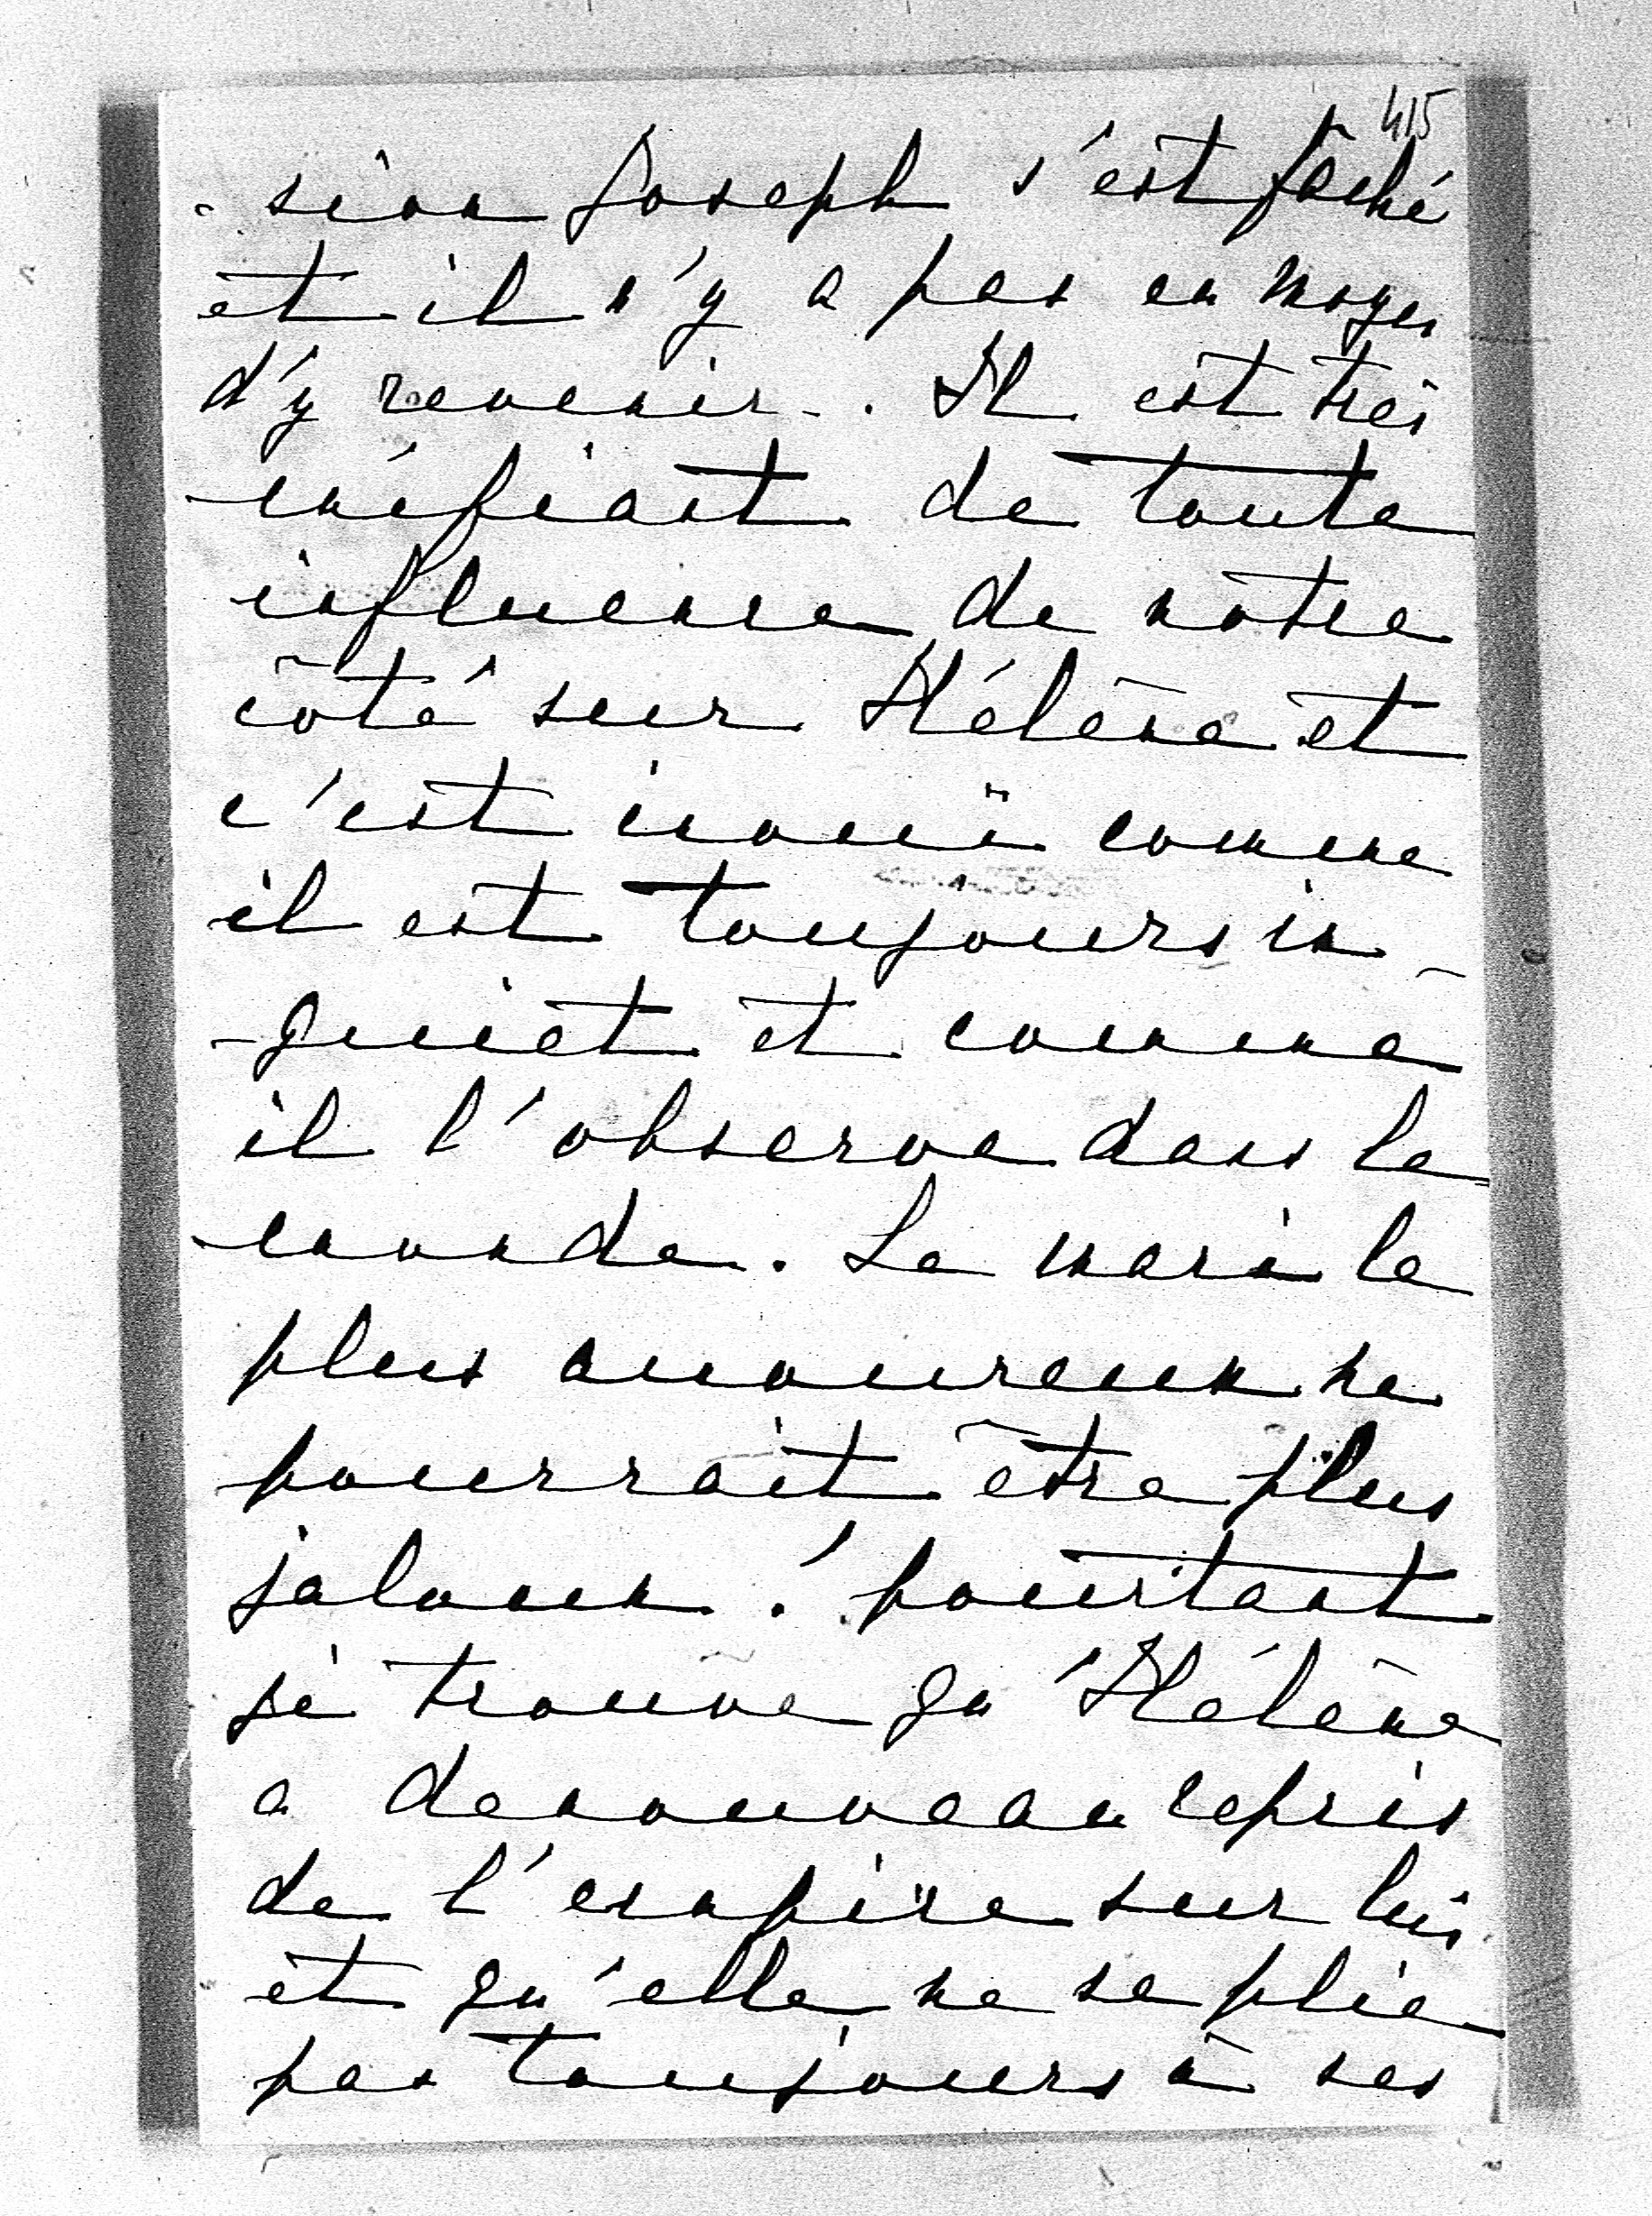 415
-sion Joseph s'est fâché
et il n'y a pas eu moyen
d'y revenir. Il est très
méfiant de toute
influence de notre
côté sur Hélène et
c'est inouï comme
il est toujours in-
-quiet et comme
il l'observe dans le
monde. Le mari le
plus amoureux ne
pourrait être plus
jaloux! pourtant
je trouve qu'Hélène
a de nouveau repris
de l'empire sur lui
et qu'elle ne se plie
pas toujours à ses